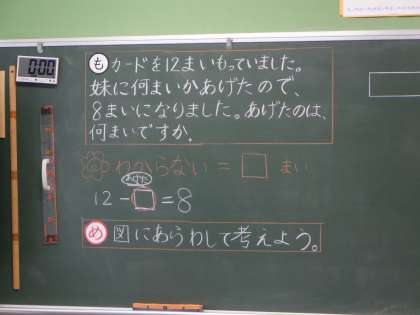 0:00
も カードを12まいもっていました。
妹に何まいかあげたので、
8まいになりました。あげたのは、
何まいですか。
わからない = □ まい
あげた
12 - □ = 8
め 図にあらわして考えよう。